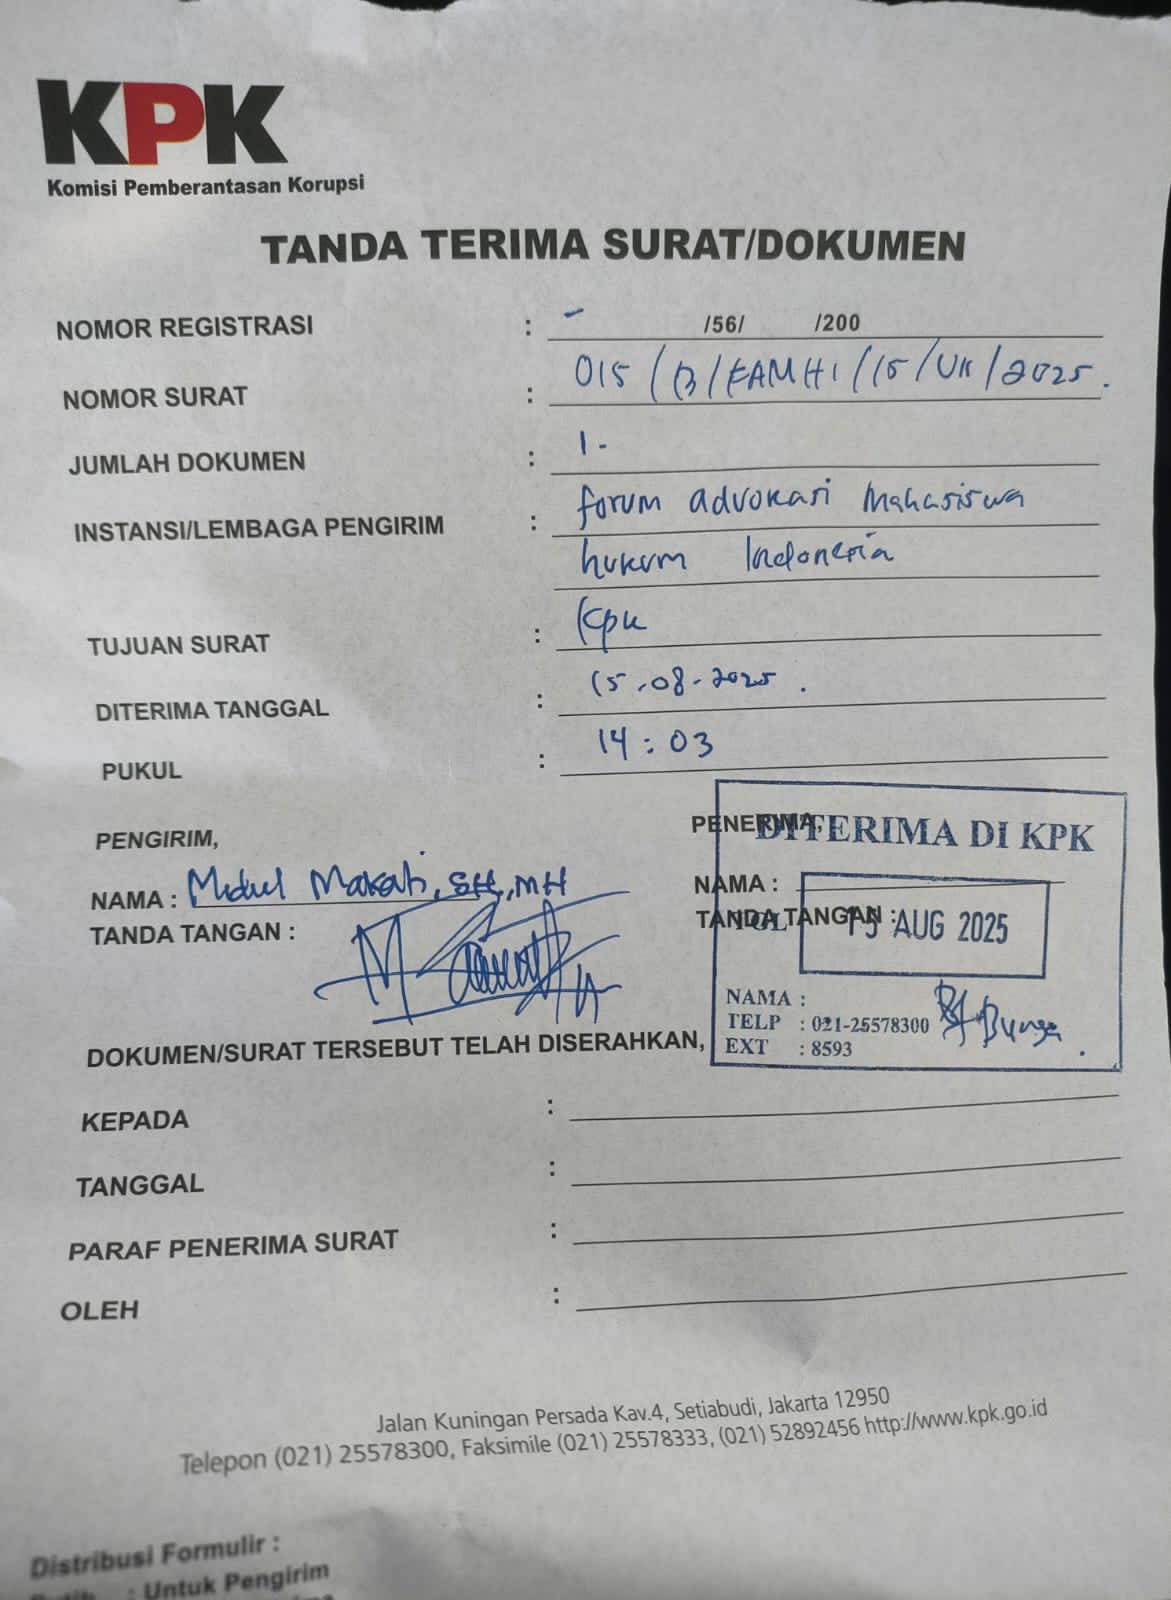 KPK
Komisi Pemberantasan Korupsi
TANDA TERIMA SURAT/DOKUMEN
NOMOR REGISTRASI : - /56/ /200
NOMOR SURAT : 015/B/FAMHI/15/VIII/2025.
JUMLAH DOKUMEN : 1-
INSTANSI/LEMBAGA PENGIRIM : forum advokasi Mahasiswa
hukum Indonesia
TUJUAN SURAT : Kpk
DITERIMA TANGGAL : 15-08-2025.
PUKUL : 14:03
PENGIRIM, PENERIMA,
DITERIMA DI KPK
NAMA : Midul Makati, SH,.MH NAMA :
TANDA TANGAN : TANDA TANGAN :
TGL 15 AUG 2025
NAMA :
TELP : 021-25578300
EXT : 8593
Bunga
DOKUMEN/SURAT TERSEBUT TELAH DISERAHKAN,
KEPADA :
TANGGAL :
PARAF PENERIMA SURAT :
OLEH :
Jalan Kuningan Persada Kav.4, Setiabudi, Jakarta 12950
Telepon (021) 25578300, Faksimile (021) 25578333, (021) 52892456 http://www.kpk.go.id
Distribusi Formulir :
: Untuk Pengirim